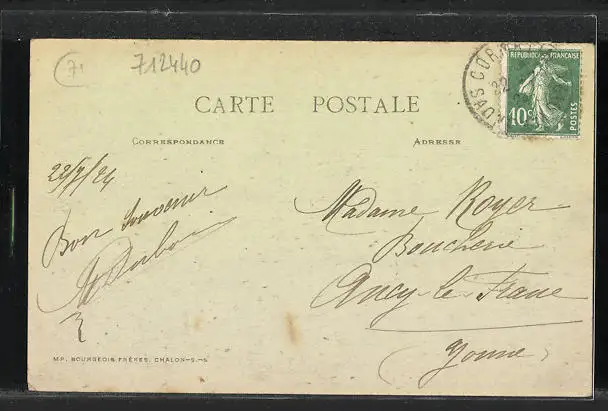 71
712440
CARTE POSTALE
CORRESPONDANCE
ADRESSE
REPUBLIQUE FRANÇAISE
10c
POSTES
Bon Souvenir
Madame Royer
Boucherie
Ancy-le-Franc
(Yonne)
IMP. BOURGEOIS FRÈRES, CHALON-S.-S.